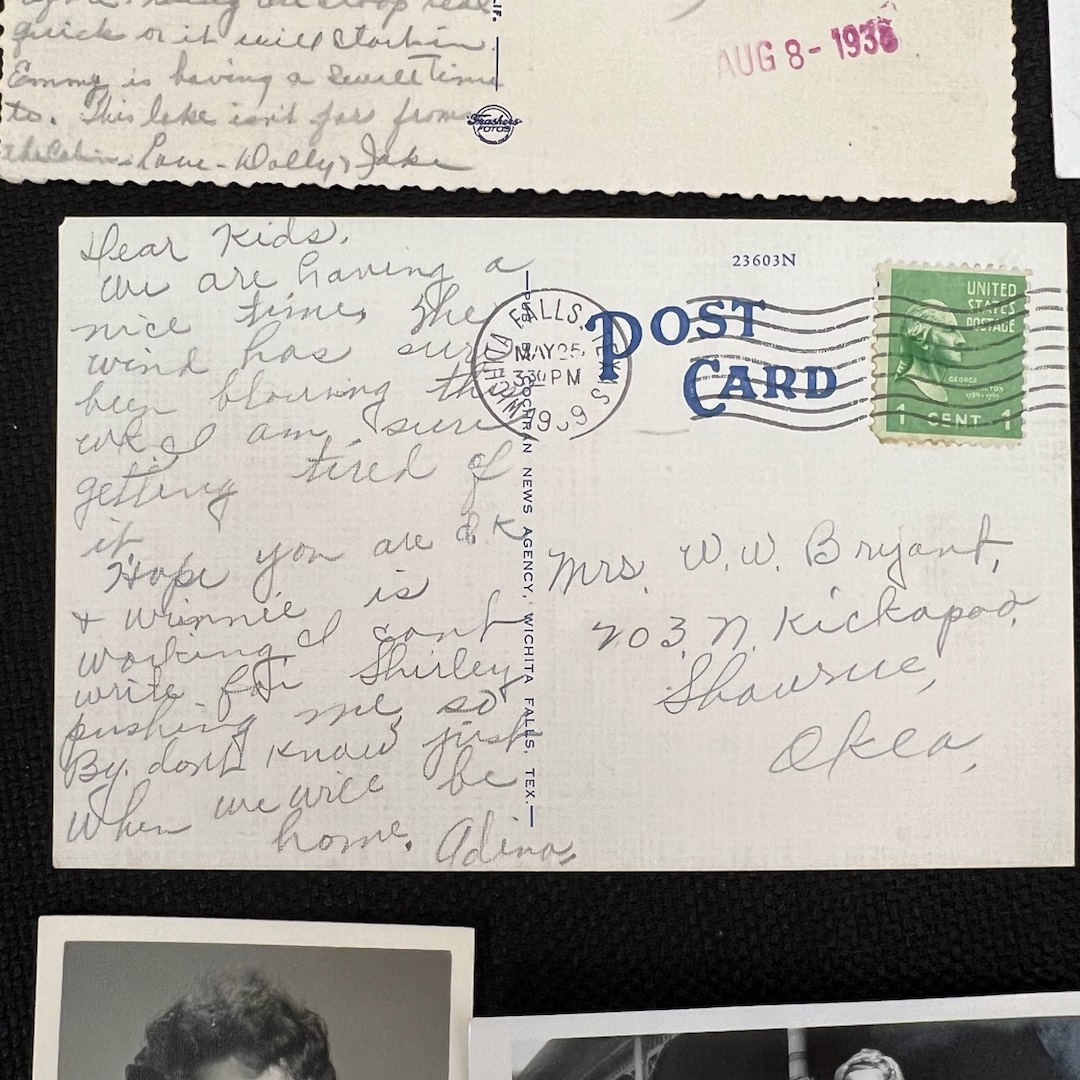 quick or it will start in.
Emmy is having a swell time
to. This lake isn't far from
the cabin - Love - Dolly & Jake
IF.
Frashers
FOTOS
AUG 8 - 1938
Dear Kids,
We are having a
nice time, The
wind has sure
been blowing this
wk I am sure
getting tired of
it.
Hope you are O.K
+ Winnie is
working, I cant
write for Shirley
pushing me, so
By. don't know just
when we will be
home. Adina,
PUB. BY COCHRAN NEWS AGENCY, WICHITA FALLS, TEX.
WICHITA FALLS, TEXAS
MAY 25
3 30 PM
1939
23603N
POST
CARD
UNITED
STATES
POSTAGE
GEORGE
1789-1797
1 CENT 1
Mrs. W. W. Bryant,
703, N. Kickapoo,
Shawnee,
Okla,